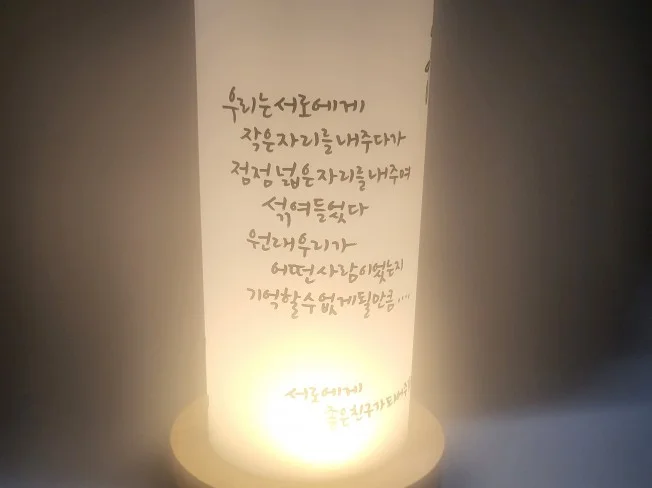 우리는 서로에게
작은 자리를 내주다가
점점 넓은 자리를 내주며
섞여들었다
원래 우리가
어떤 사람이었는지
기억할 수 없게 될 만큼....
서로에게
좋은 친구가